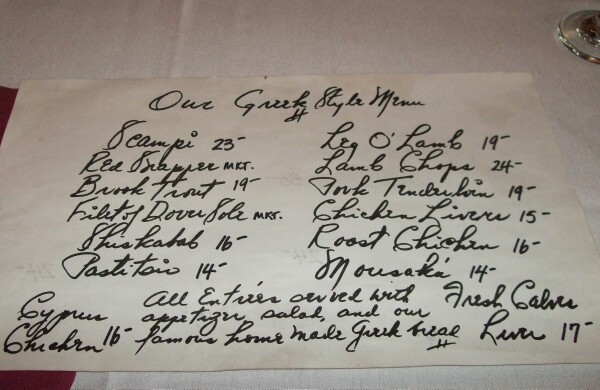 Our Greek Style Menu
Scampi 23-
Red Snapper MKT.
Brook Trout 19-
Filet of Dover Sole MKT.
Shiskabab 16-
Pastitsio 14-
Leg O'Lamb 19-
Lamb Chops 24-
Pork Tenderloin 19-
Chicken Livers 15-
Roast Chicken 16-
Mousaka 14-
Cyprus
Chicken 16-
All Entrées served with
appetizer, salad, and our
famous home made Greek bread
Fresh Calves
Liver 17-